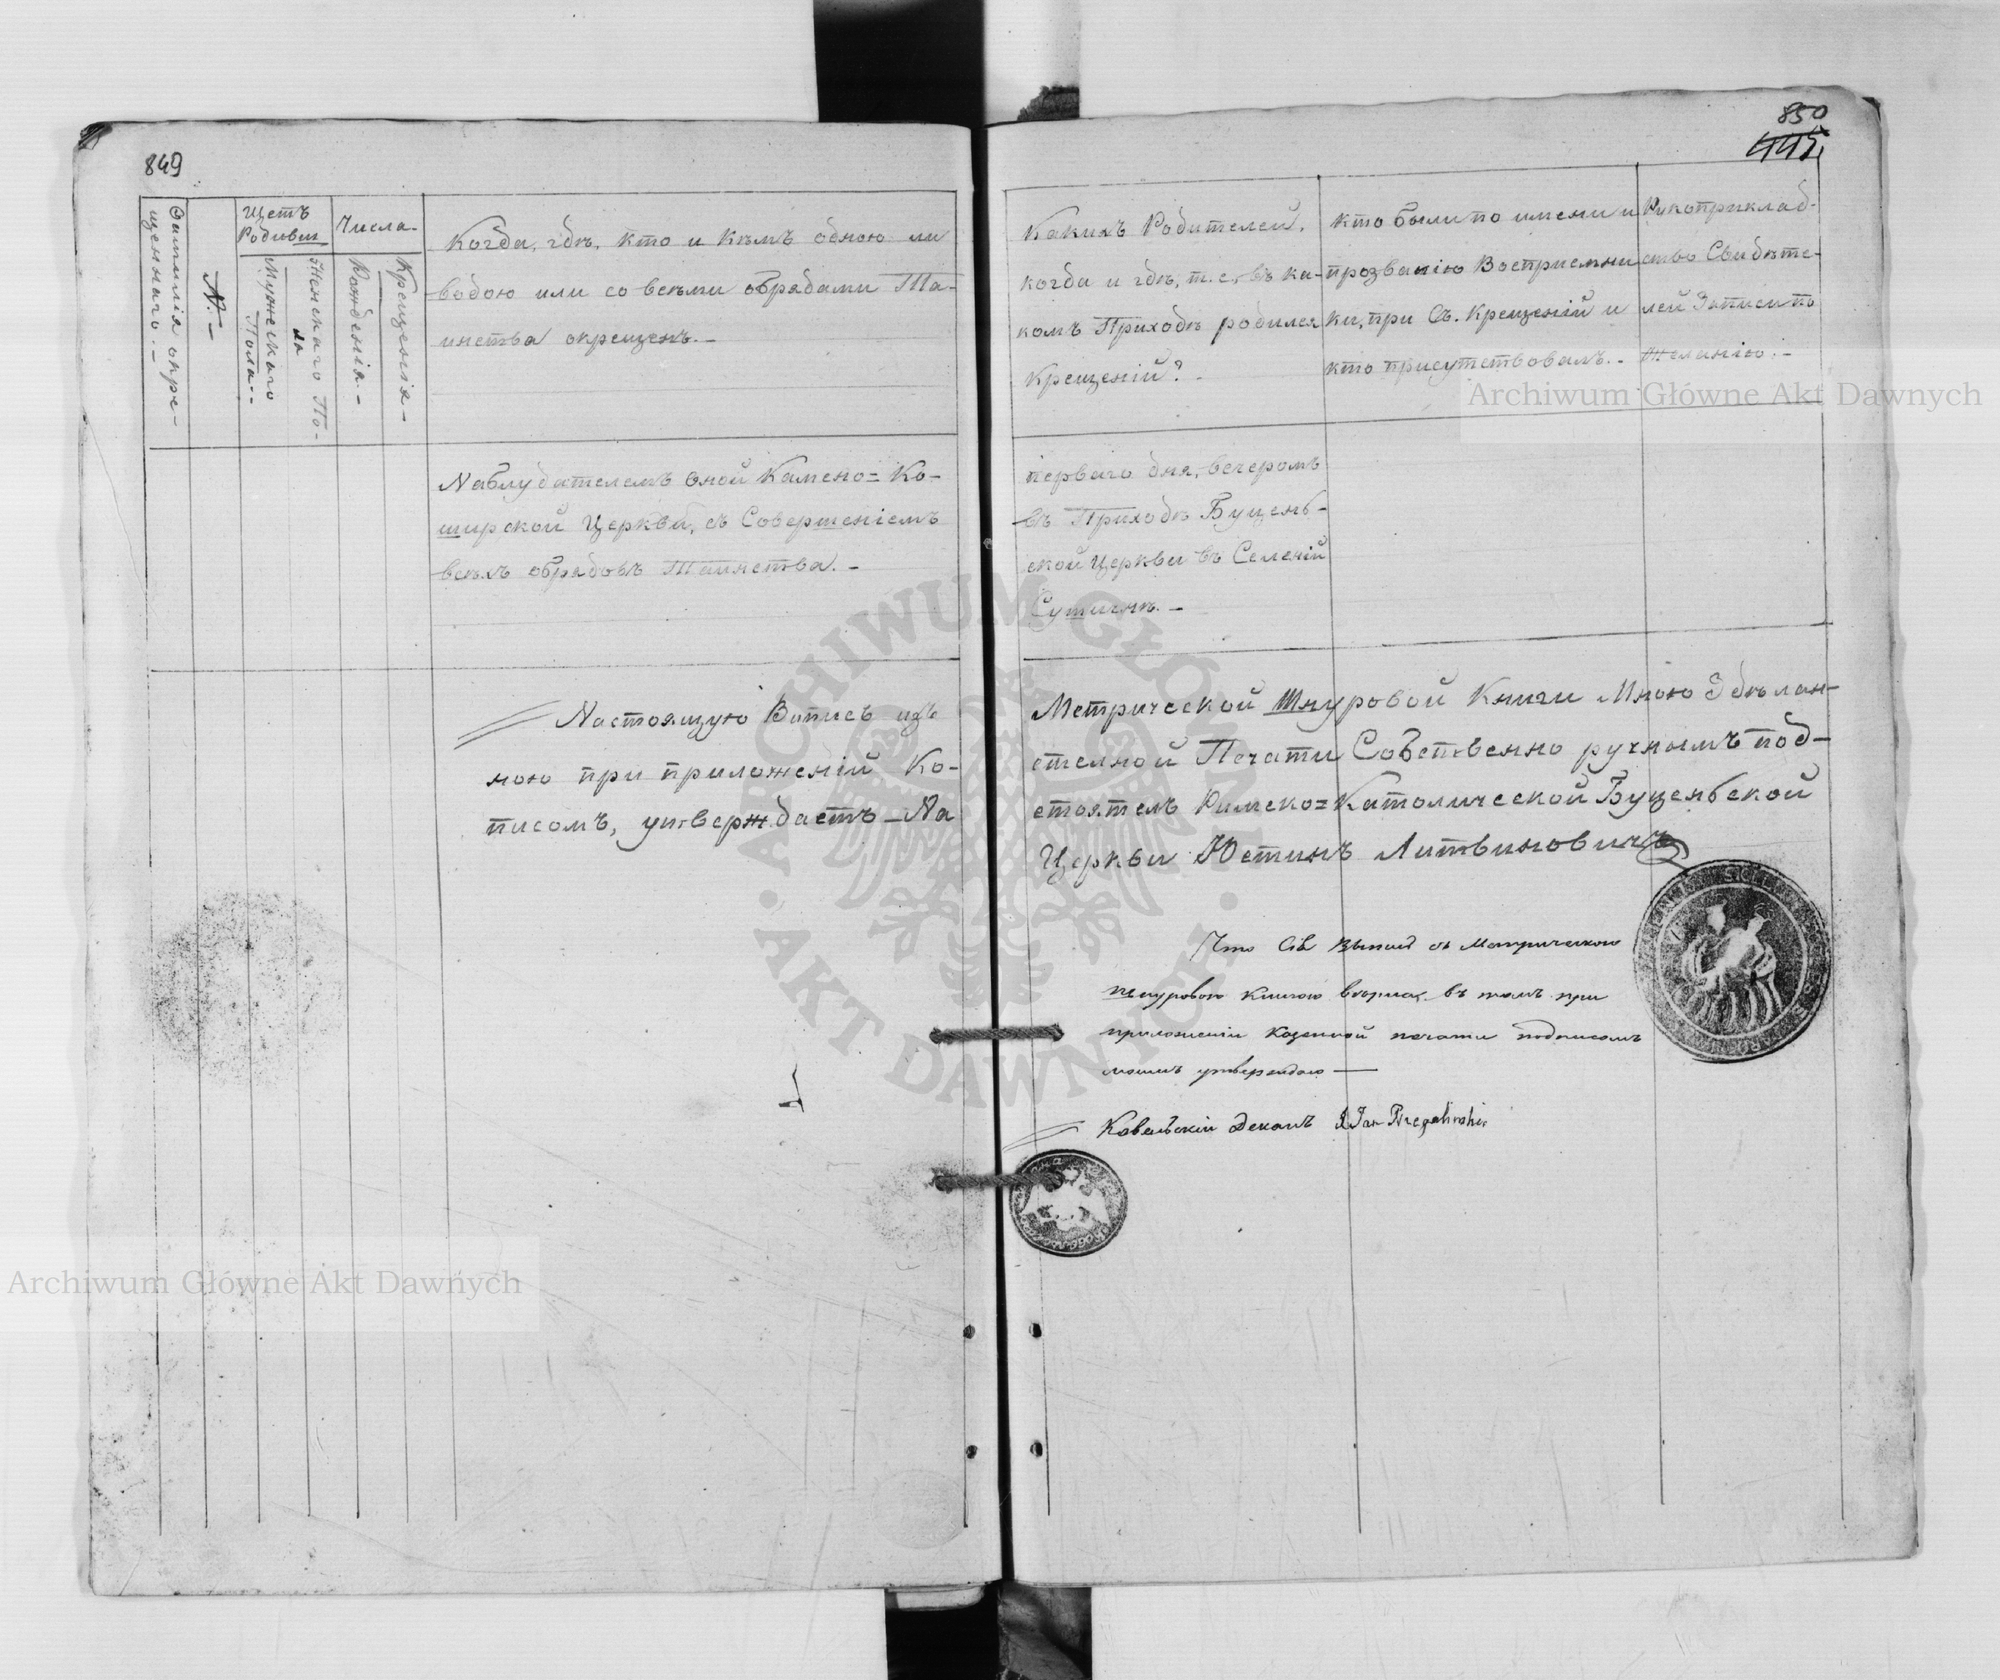 849
Фамилія окре-
щеннаго. –
N. –
Щетъ
Родивш
Мужескаго
Пола. –
Женскаго По-
ла
Числа.
Рожденія. –
Крещенія –
Когда, гдѣ, кто и кѣмъ одною ли
водою или со всѣми обрядами Та-
инства окрещенъ. –
Наблудателемъ оной Камено= Ко-
ширской Церкви, съ Совершеніемъ
всѣхъ обрядовъ Таинства. –
Настоящую Вопись изъ
ною при приложеніи Ко-
писомъ, утверждаетъ – На
850
445
Какихъ Родителей,
когда и гдѣ, т. е. въ ка-
комъ Приходѣ родился
Крещеній? –
кто были по имени и
прозванію Восприемни
ки, при Св. Крещеній и
кто присутствовалъ. –
Рукоприклад-
ство Свидѣте-
лей Записи по
Желанію. –
перваго дня, вечеромъ
въ Приходѣ Буцень-
ской Церкви въ Селеній
Метрической Шнуровой Книги Мною Здѣлан-
стелной Печати Собственно ручнымъ под-
стоятель Римско=Католической Буценьской
Церкви Юстинъ Литвиновичъ
Что Сія Выпись съ Метрическою
шнуровою книгою вѣрна, въ томъ при
приложеніи Казенной печати подписомъ
моимъ утверждаю —
Ковельскій Деканъ
Archiwum Główne Akt Dawnych
Archiwum Główne Akt Dawnych
ARCHIWUM GŁÓWNE
AKT DAWNYCH